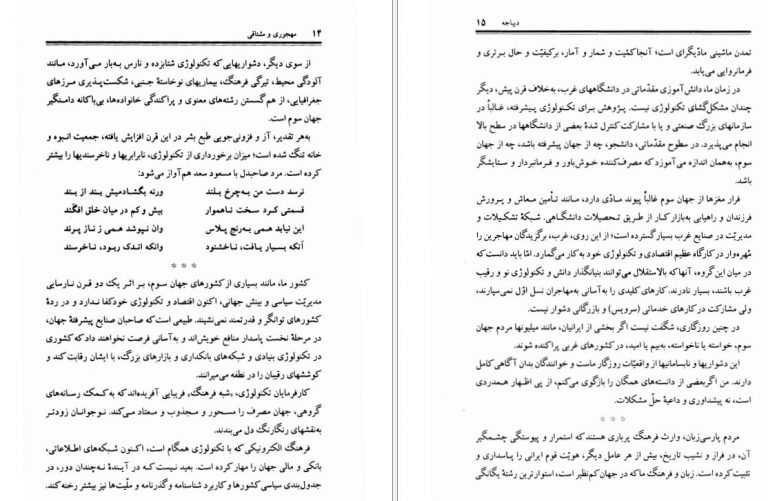 ۱۴ مهجوری و مشتاقی
از سوی دیگر، دشواریهایی که تکنولوژی شتابزده و نارس به‌بار می‌آورد، مانند
آلودگی محیط، تیرگی فرهنگ، بیماریهای نوخاستهٔ جنبی، شکست‌پذیری مرزهای
جغرافیایی، از هم گسستن رشته‌های معنوی و پراکندگی خانواده‌ها، بی‌باکانه دامنگیر
جهان سوم است.
به‌هر تقدیر، آز و فزونی‌جویی طبع بشر در این قرن افزایش یافته، جمعیت انبوه و
خانه تنگ شده است؛ میزان برخورداری از تکنولوژی، نابرابریها و ناخرسندیها را بیشتر
کرده است. مرد صاحبدل با مسعود سعد هم‌آواز می‌شود:
نرسد دست من به‌چرخ بلند ورنه بگشادمیش بند از بند
قسمتی کرد سخت ناهموار بیش و کم در میان خلق افگند
این نیابد همی به‌رنج پلاس وان نپوشد همی ز ناز پرند
آنکه بسیار یافت، ناخشنود وانکه اندک ربود، ناخرسند
* * *
کشور ما، مانند بسیاری از کشورهای جهان سوم، بر اثر یک دو قرن نارسایی
مدیریّت سیاسی و بینش جهانی، اکنون اقتصاد و تکنولوژی خودکفا ندارد و در ردهٔ
کشورهای توانگر و قدرتمند نمی‌نشیند. طبیعی است که صاحبان صنایع پیشرفتهٔ جهان،
در مرحلهٔ نخست پاسدار منافع خویش‌اند و به‌آسانی فرصت نخواهند داد که کشوری
در تکنولوژی بنیادی و شبکه‌های بانکداری و بازارهای بزرگ، با ایشان رقابت کند و
کوششهای رقیبان را در نطفه می‌میرانند.
کارفرمایان تکنولوژی، «شبه فرهنگ» فریبایی آفریده‌اند که به‌کمک رسانه‌های
گروهی، جهان مصرف را مسحور و مجذوب و معتاد می‌کند. نوجوانان زودتر
به‌نقشهای رنگارنگ دل می‌بندند.
فرهنگ الکترونیکی که با تکنولوژی همگام است، اکنون شبکه‌های اطلاعاتی،
بانکی و مالی جهان را مهار کرده است. بعید نیست که در آیندهٔ نه‌چندان دور، در
جدول‌بندی سیاسی کشورها و کاربرد شناسنامه و گذرنامه و ملّیت‌ها نیز بیشتر رخنه کند.
دیباچه ۱۵
تمدن ماشینی مادّیگرای است؛ آنجا کمّیت و شمار و آمار، برکیفیّت و حال برتری و
فرمانروایی می‌یابد.
در زمان ما، دانش‌آموزی مقدّماتی در دانشگاههای غرب، به‌خلاف قرن پیش، دیگر
چندان مشکل‌گشای تکنولوژی نیست. پژوهش برای تکنولوژی پیشرفته، غالباً در
سازمانهای بزرگ صنعتی و یا با مشارکت کنترل شدهٔ بعضی از دانشگاهها در سطح بالا
انجام می‌پذیرد. در سطوح مقدّماتی، دانشجو، چه از جهان پیشرفته باشد، چه از جهان
سوم، به‌همان اندازه می‌آموزد که مصرف‌کننده خوش‌باور و فرمانبردار و ستایشگر
باشد.
فرار مغزها از جهان سوم غالباً پیوند مادّی دارد، مانند تأمین معاش و پرورش
فرزندان و راهیابی به‌بازار کار از طریق تحصیلات دانشگاهی. شبکهٔ تشکیلات و
مدیریّت در صنایع غرب بسیار گسترده است؛ از این روی، غرب، برگزیدگان مهاجرین را
مُهره‌وار در کارگاه عظیم اقتصادی و تکنولوژی خود به‌کار می‌گمارد. امّا باید دانست که
در میان این گروه، آنها که بالاستقلال می‌توانند بنیانگذار دانش و تکنولوژی نو و رقیب
غرب باشند، بسیار نادرند. کارهای کلیدی را به‌آسانی به‌مهاجران نسل اوّل نمی‌سپارند،
ولی مشارکت در کارهای خدماتی (سرویس) و بازرگانی دشوار نیست.
در چنین روزگاری، شگفت نیست اگر بخشی از ایرانیان، مانند میلیونها مردم جهان
سوم، خواسته یا ناخواسته، به‌بیم یا امید، در کشورهای غربی پراکنده شوند.
این دشواریها و نابسامانیها از واقعیّات روزگار ماست و خوانندگان بدان آگاهی کامل
دارند. من اگر بعضی از دانسته‌های همگان را بازگوی می‌کنم، از پی اظهار همدردی
است، نه پیشداوری و داعیهٔ حلّ مشکلات.
* * *
مردم پارسی‌زبان، وارث فرهنگ پرباری هستند که استمرار و پیوستگی چشمگیر
آن، در فراز و نشیب تاریخ، بیش از هر عامل دیگر، هویّت قوم ایرانی را پاسداری و
تثبیت کرده است. زبان و فرهنگ ما که در جهان کم‌نظیر است، استوارترین رشتهٔ یگانگی